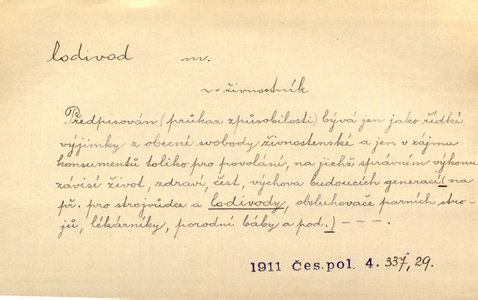 lodivod m.
v živnostník
Předpisován (průkaz způsobilosti) bývá jen jako řídké
výjimky z obecné svobody živnostenské a jen v zájmu
konsumentů toliko pro povolání, na jichž správném výkonu
závisí život, zdraví, čest, výchova budoucích generací (na
př. pro strojvůdce a lodivody, obsluhovače parních stro-
jů, lékárníky, porodní báby a pod.) – – –.
1911 Čes. pol. 4. 337, 29.